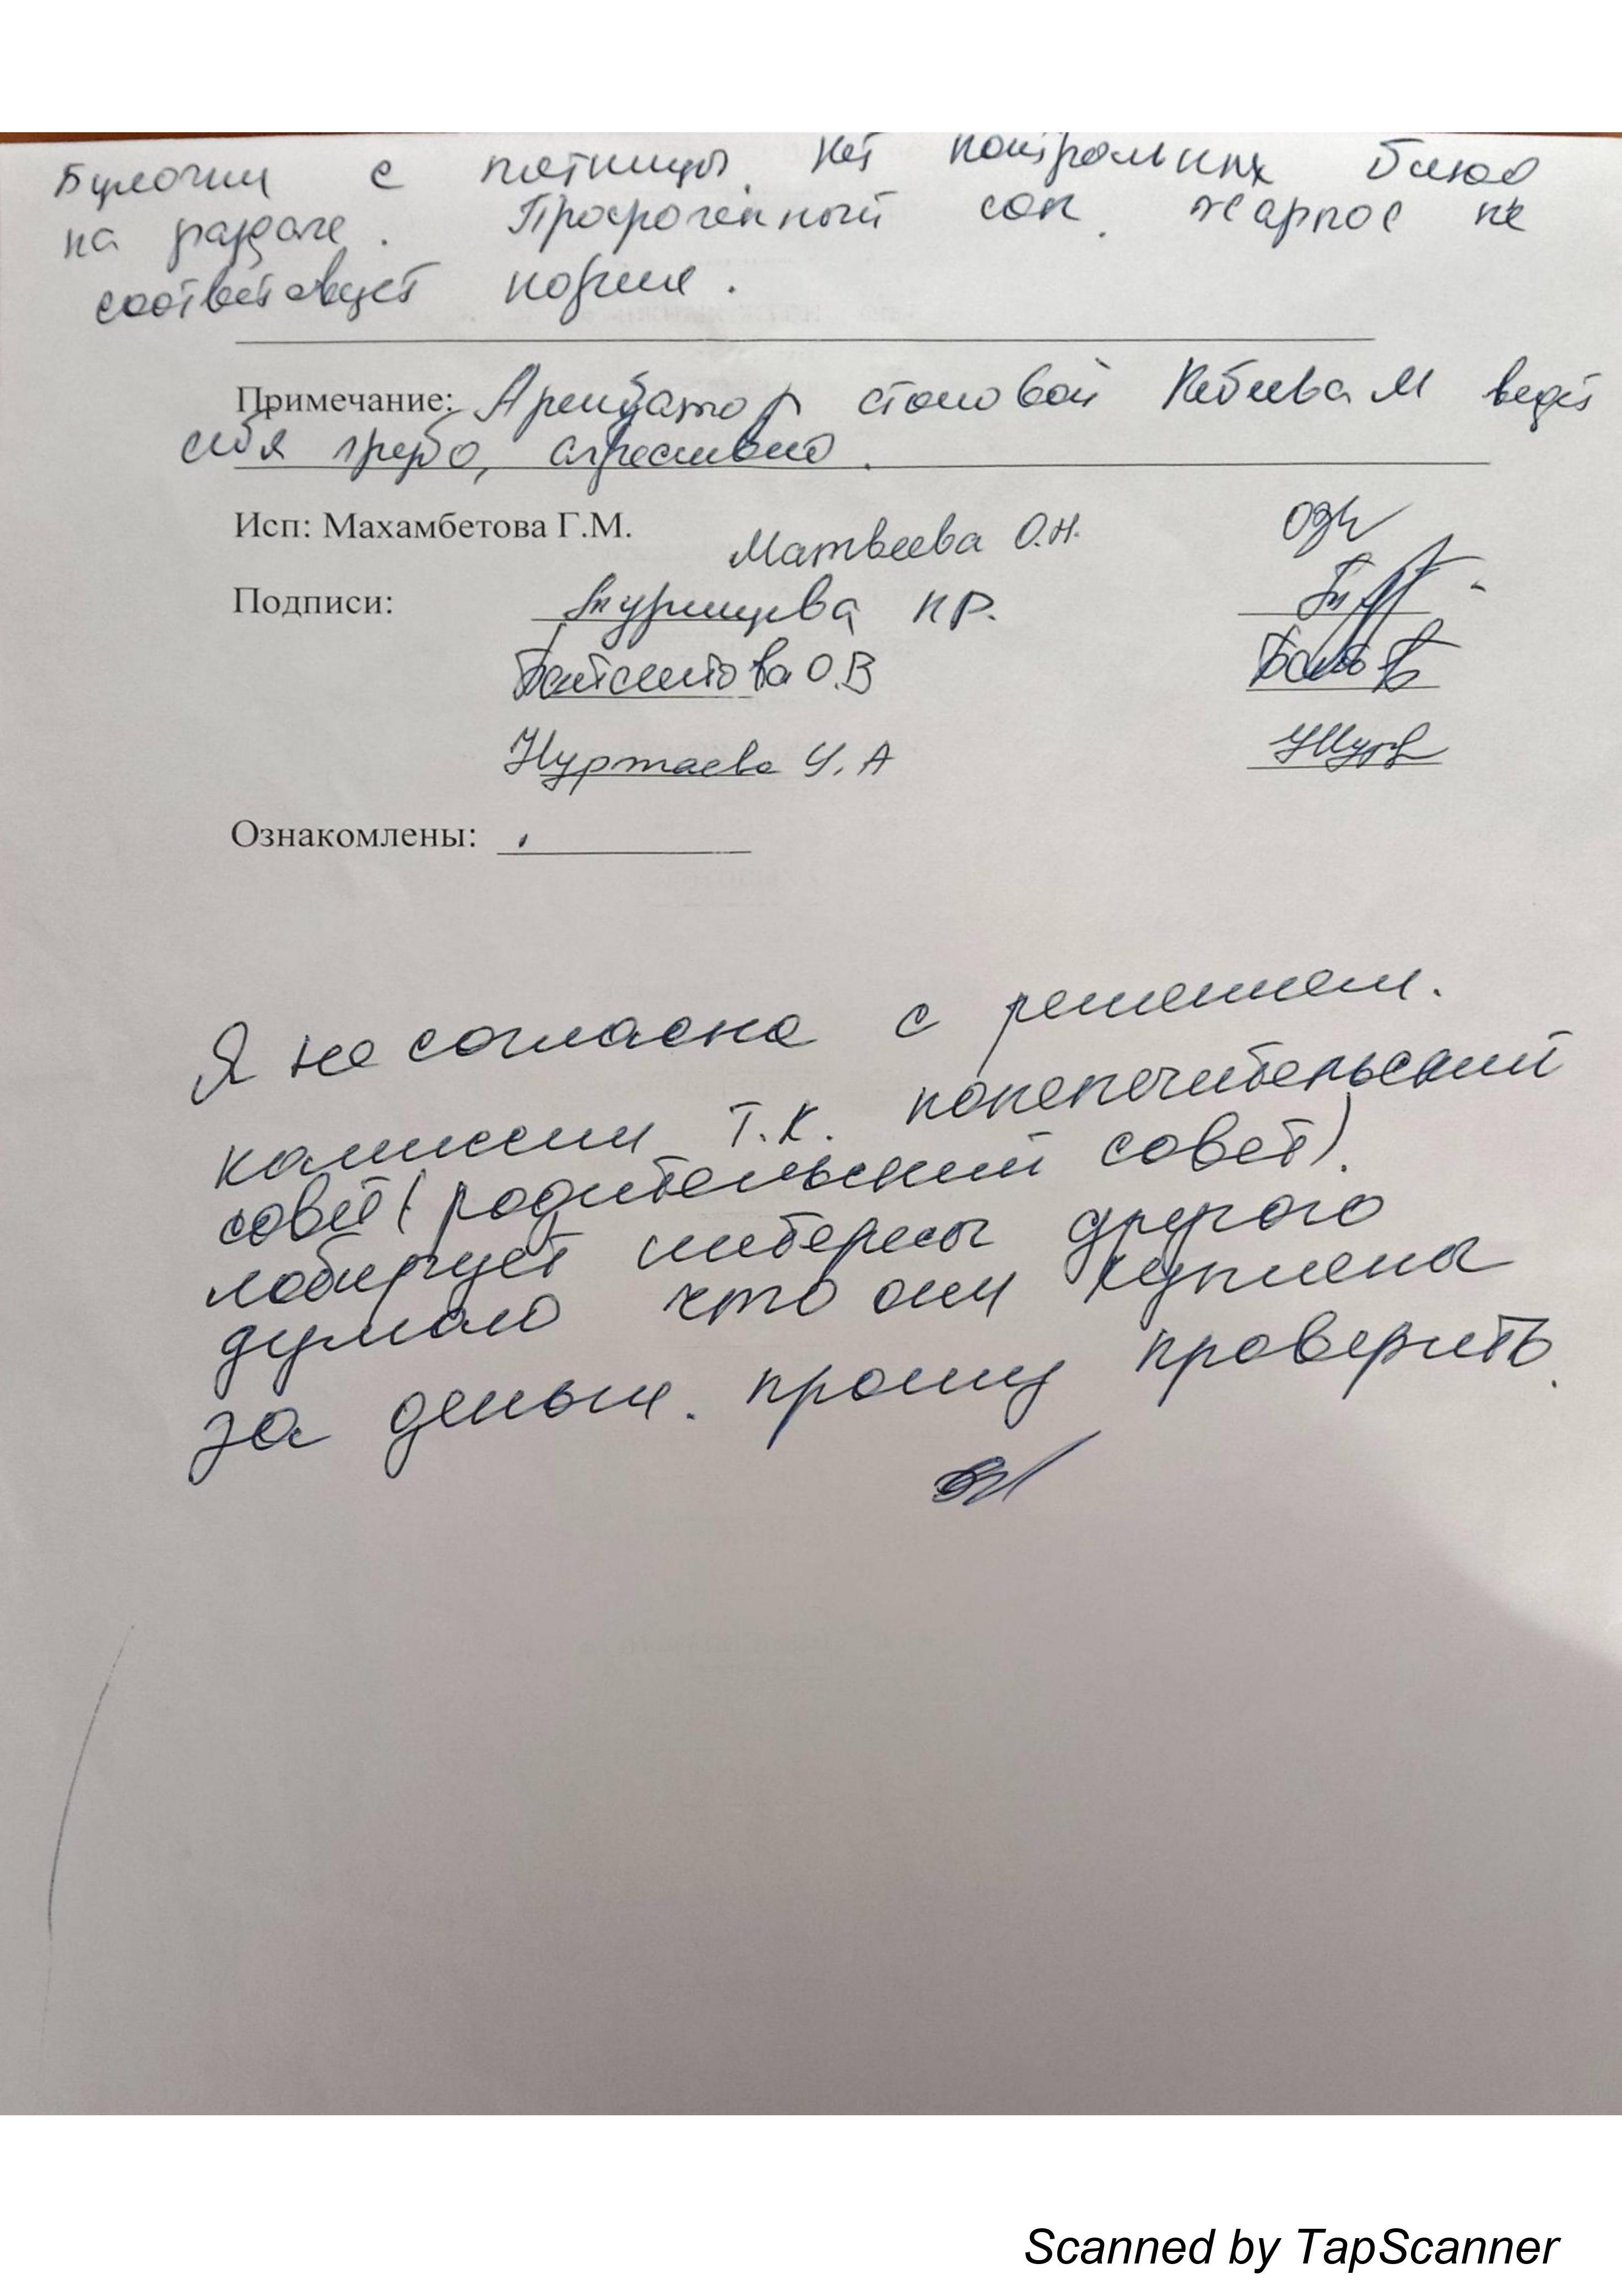 Булочки с пятницы. Нет контрольных блюд
на раздаче. Просроченный сок. Жаркое не
соответствует норме.
Примечание: Арендатор столовой Кебеева М ведёт
себя грубо, агрессивно.
Исп: Махамбетова Г.М.
Матвеева О.Н.
Подписи: Турищева Н.Р.
Байсеитова О.В
Нуртаева У.А
Ознакомлены:
Я не согласна с решением.
комиссии т.к. попепечительский
совет (родительский совет).
лобирует интересы другого
думаю что они куплены
за деньги. прошу проверить.
Scanned by TapScanner